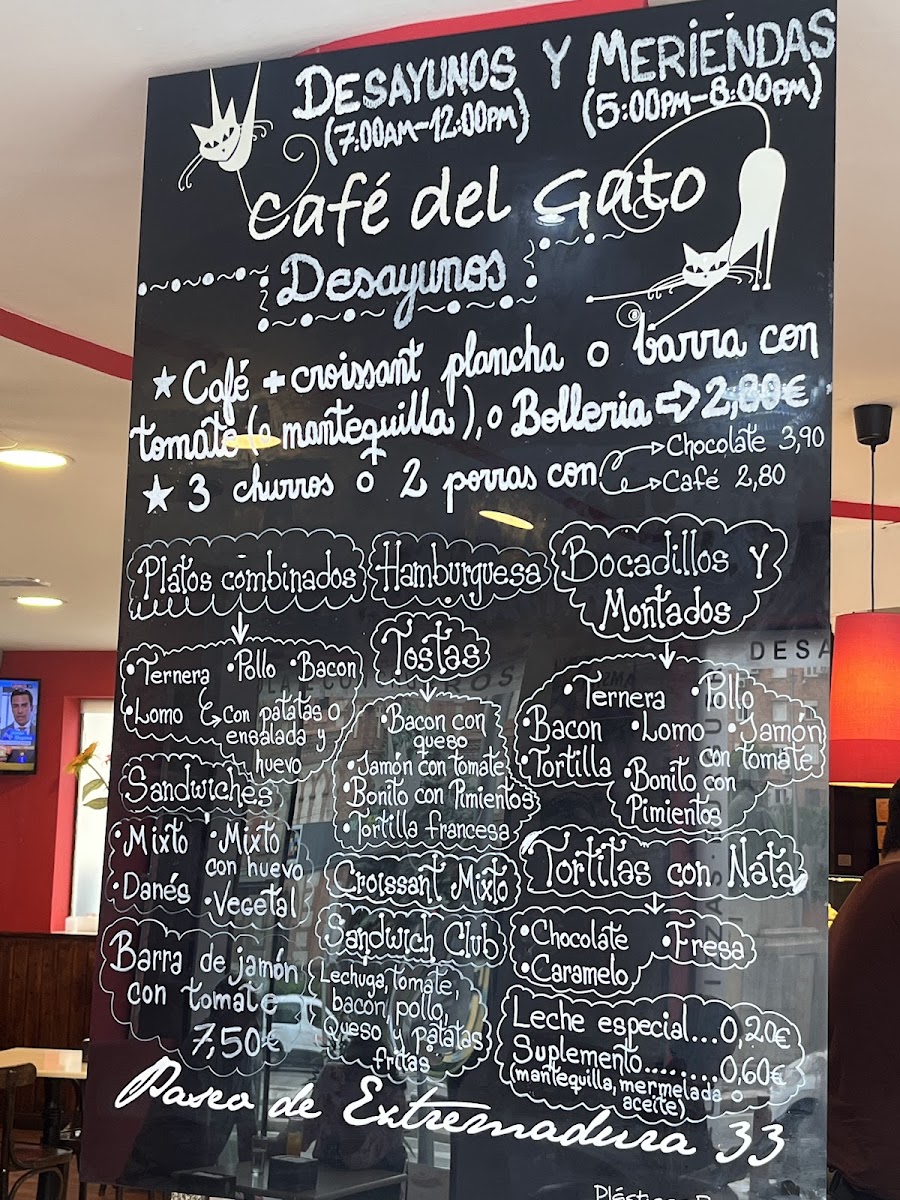 DESAYUNOS Y MERIENDAS
(7:00AM-12:00PM) (5:00PM-8:00PM)
Café del Gato
Desayunos
★ Café + croissant plancha o barra con
tomate (o mantequilla), o Bolleria ⇨ 2,80€
★ 3 churros o 2 porras con
Chocolate 3,90
Café 2,80
Platos combinados
•Ternera •Pollo •Bacon
•Lomo
Con patatas o
ensalada y
huevo
Sandwiches
•Mixto •Mixto
con huevo
•Danés •Vegetal
Barra de jamón
con tomate
7,50€
Hamburguesa
Tostas
•Bacon con
queso
•Jamón con tomate
•Bonito con Pimientos
•Tortilla francesa
Croissant Mixto
Sandwich Club
Lechuga, tomate,
bacon, pollo,
Queso y patatas
fritas
Bocadillos y
Montados
•Ternera •Pollo
•Bacon •Lomo •Jamón
con tomate
•Tortilla •Bonito con
Pimientos
Tortitas con Nata
•Chocolate •Fresa
•Caramelo
Leche especial...0,20€
Suplemento........0,60€
(mantequilla, mermelada o
aceite)
Paseo de Extremadura 33
DESA